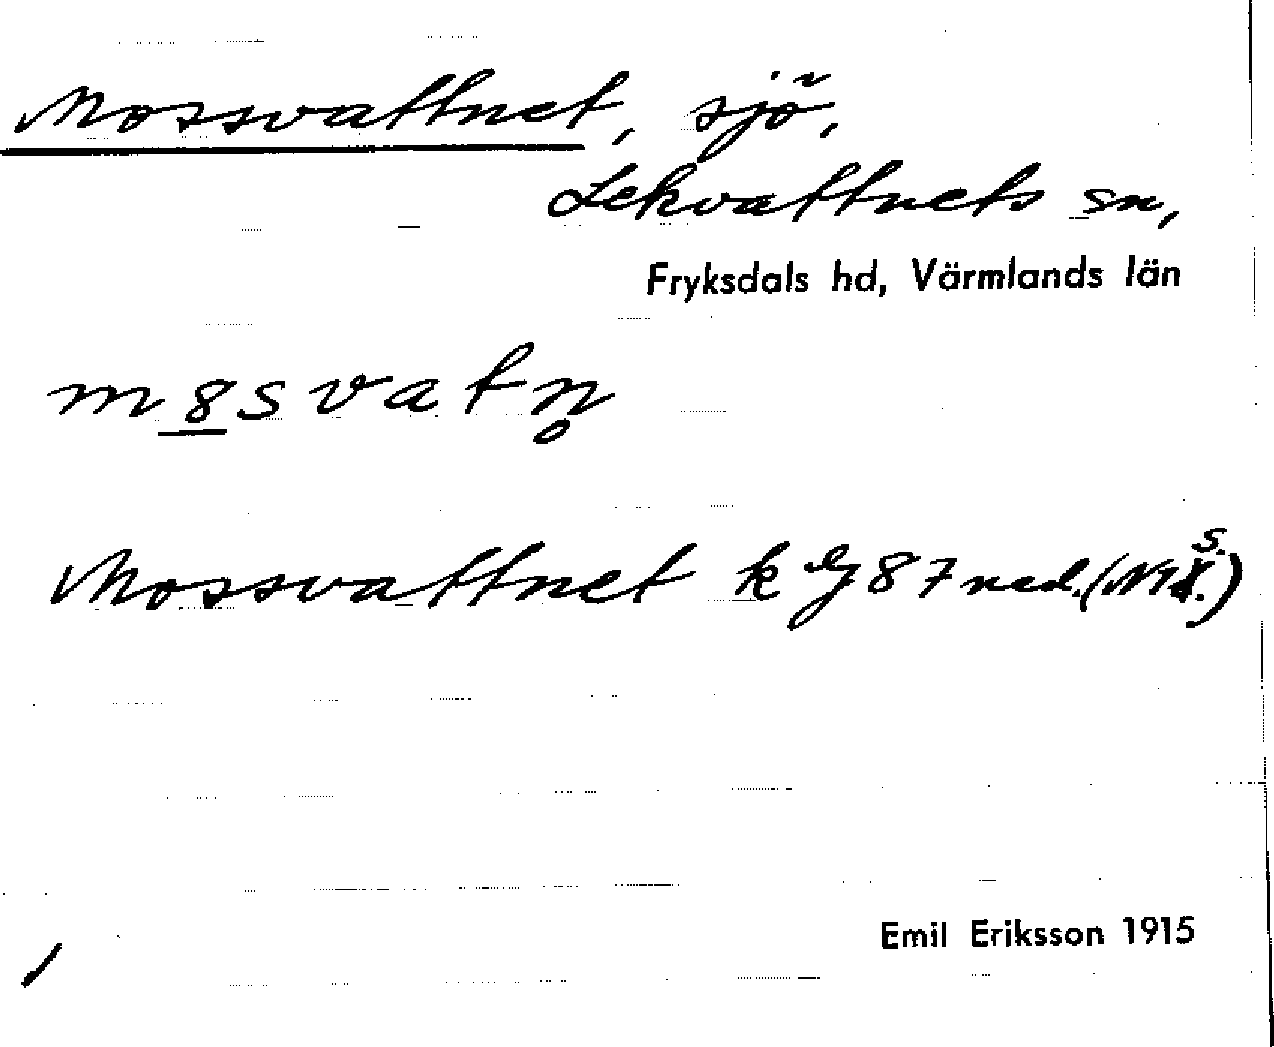 Mossvattnet, sjö,
Lekvattnets sn,
Fryksdals hd, Värmlands län
m8svatn̥
Mossvattnet k 87 ned.
Emil Eriksson 1915